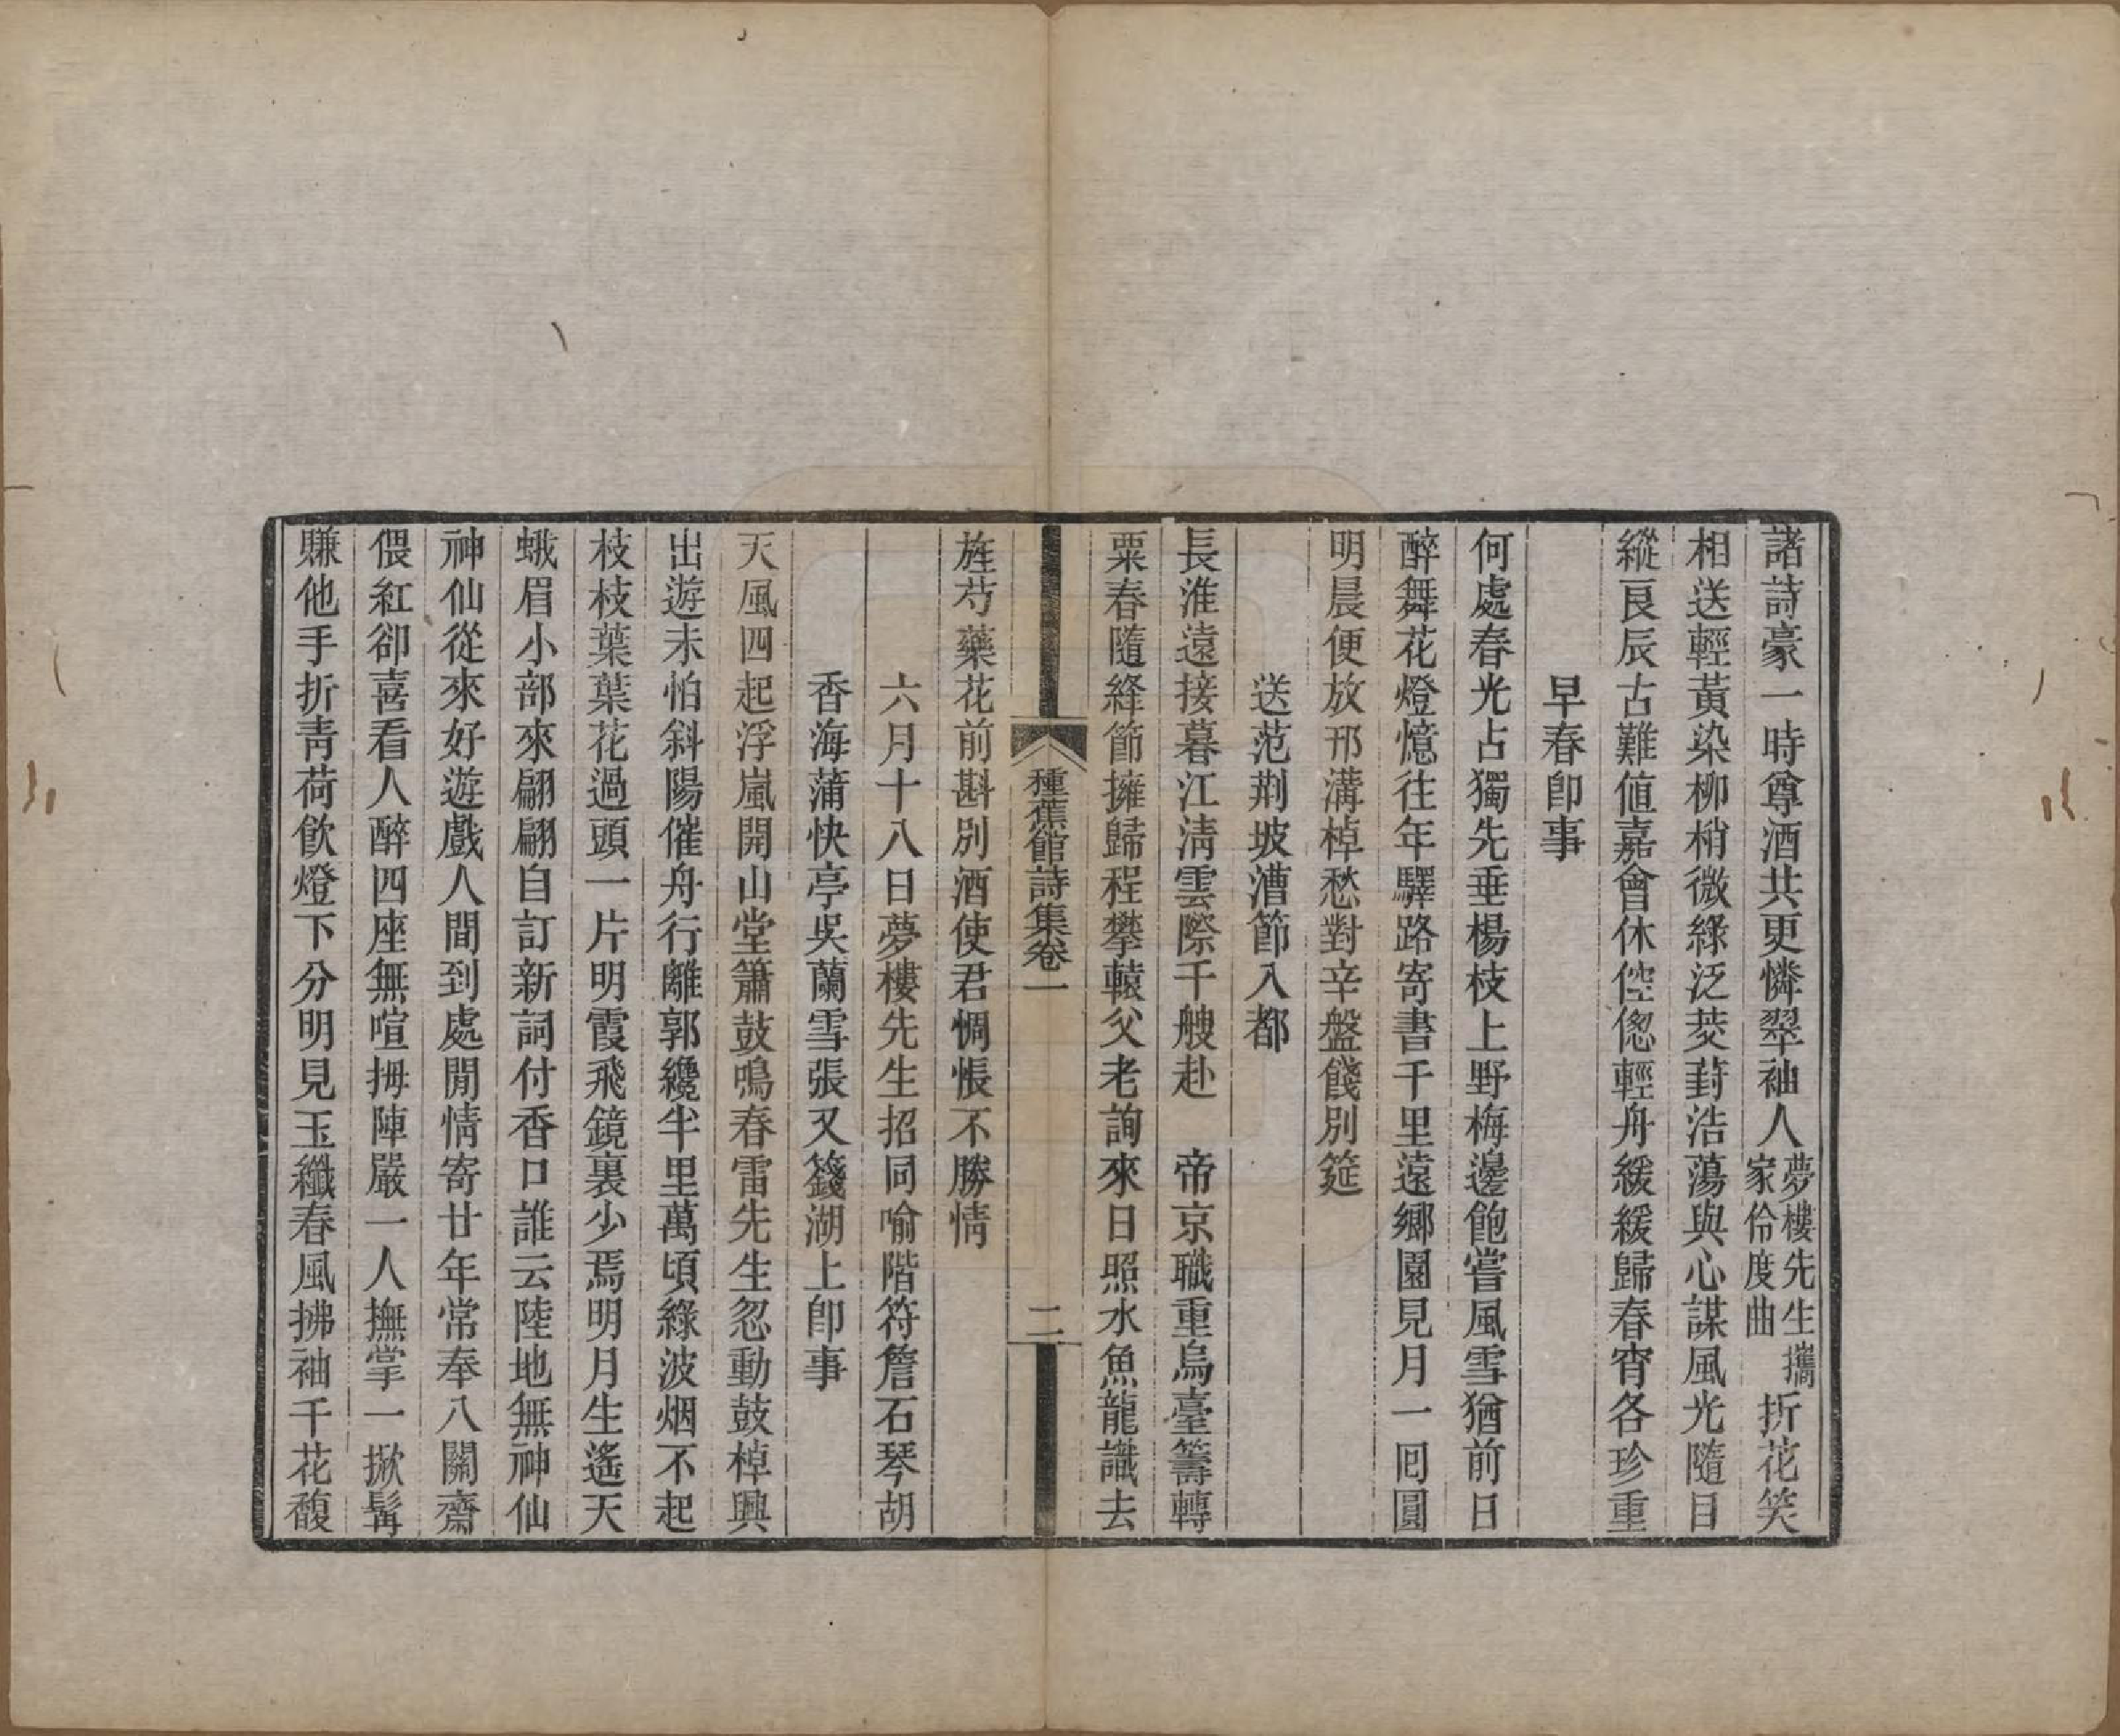 諸詩豪一時尊酒共更憐翠袖人夢樓先生攜家伶度曲折花笑
相送輕黃染柳梢微綠泛葑浩蕩與心謀風光隨目
縱良辰古難値嘉會休倥傯輕舟緩緩歸春宵各珍重
早春卽事
何處春光占獨先垂楊枝上野梅邊飽嘗風雪猶前日
醉舞花燈憶往年驛路寄書千里遠鄉園見月一囘圓
明晨便放邗溝棹愁對辛盤餞別筵
送范荆坡漕節入都
長淮遠接暮江淸雲際千艘赴 帝京職重烏臺籌轉
粟春隨絳節擁歸程攀轅父老詢來日照水魚龍識去
種蕉館詩集卷一
二
旌芍藥花前斟別酒使君惆悵不勝情
六月十八日夢樓先生招同喻階符詹石琴胡
香海蒲快亭吳蘭雪張又籛湖上卽事
天風四起浮嵐開山堂簫鼓鳴春雷先生忽動鼓棹興
出遊未怕斜陽催舟行離郭纔半里萬頃綠波烟不起
枝枝葉葉花過頭一片明霞飛鏡裏少焉明月生遙天
蛾眉小部來翩翩自訂新詞付香口誰云陸地無神仙
神仙從來好遊戲人間到處閒情寄廿年常奉八關齋
偎紅卻喜看人醉四座無喧拇陣嚴一人撫掌一掀髯
賺他手折靑荷飮燈下分明見玉纖春風拂袖千花馥